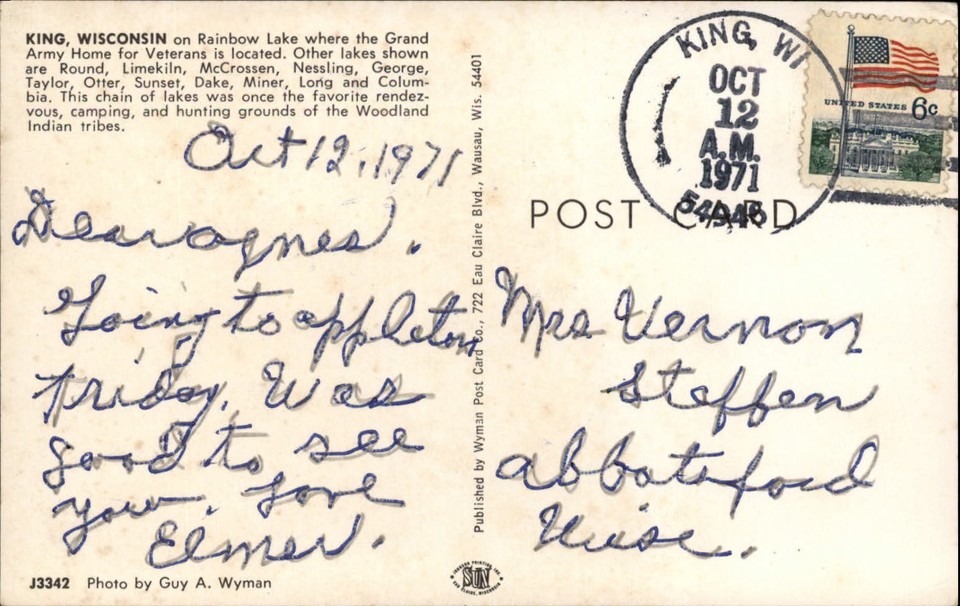 KING, WISCONSIN on Rainbow Lake where the Grand
Army Home for Veterans is located. Other lakes shown
are Round, Limekiln, McCrossen, Nessling, George,
Taylor, Otter, Sunset, Dake, Miner, Long and Colum-
bia. This chain of lakes was once the favorite rendez-
vous, camping, and hunting grounds of the Woodland
Indian tribes.
Oct 12, 1971
Dear agnes.
Going to appleton
Friday. Was
good to see
you. Love
Elmer.
J3342 Photo by Guy A. Wyman
Published by Wyman Post Card Co., 722 Eau Claire Blvd., Wausau, Wis. 54401
KING, WI
OCT
12
A.M.
1971
UNITED STATES 6c
POST CARD
Mrs Vernon
Steffen
abbotsford
Wisc.
SUN